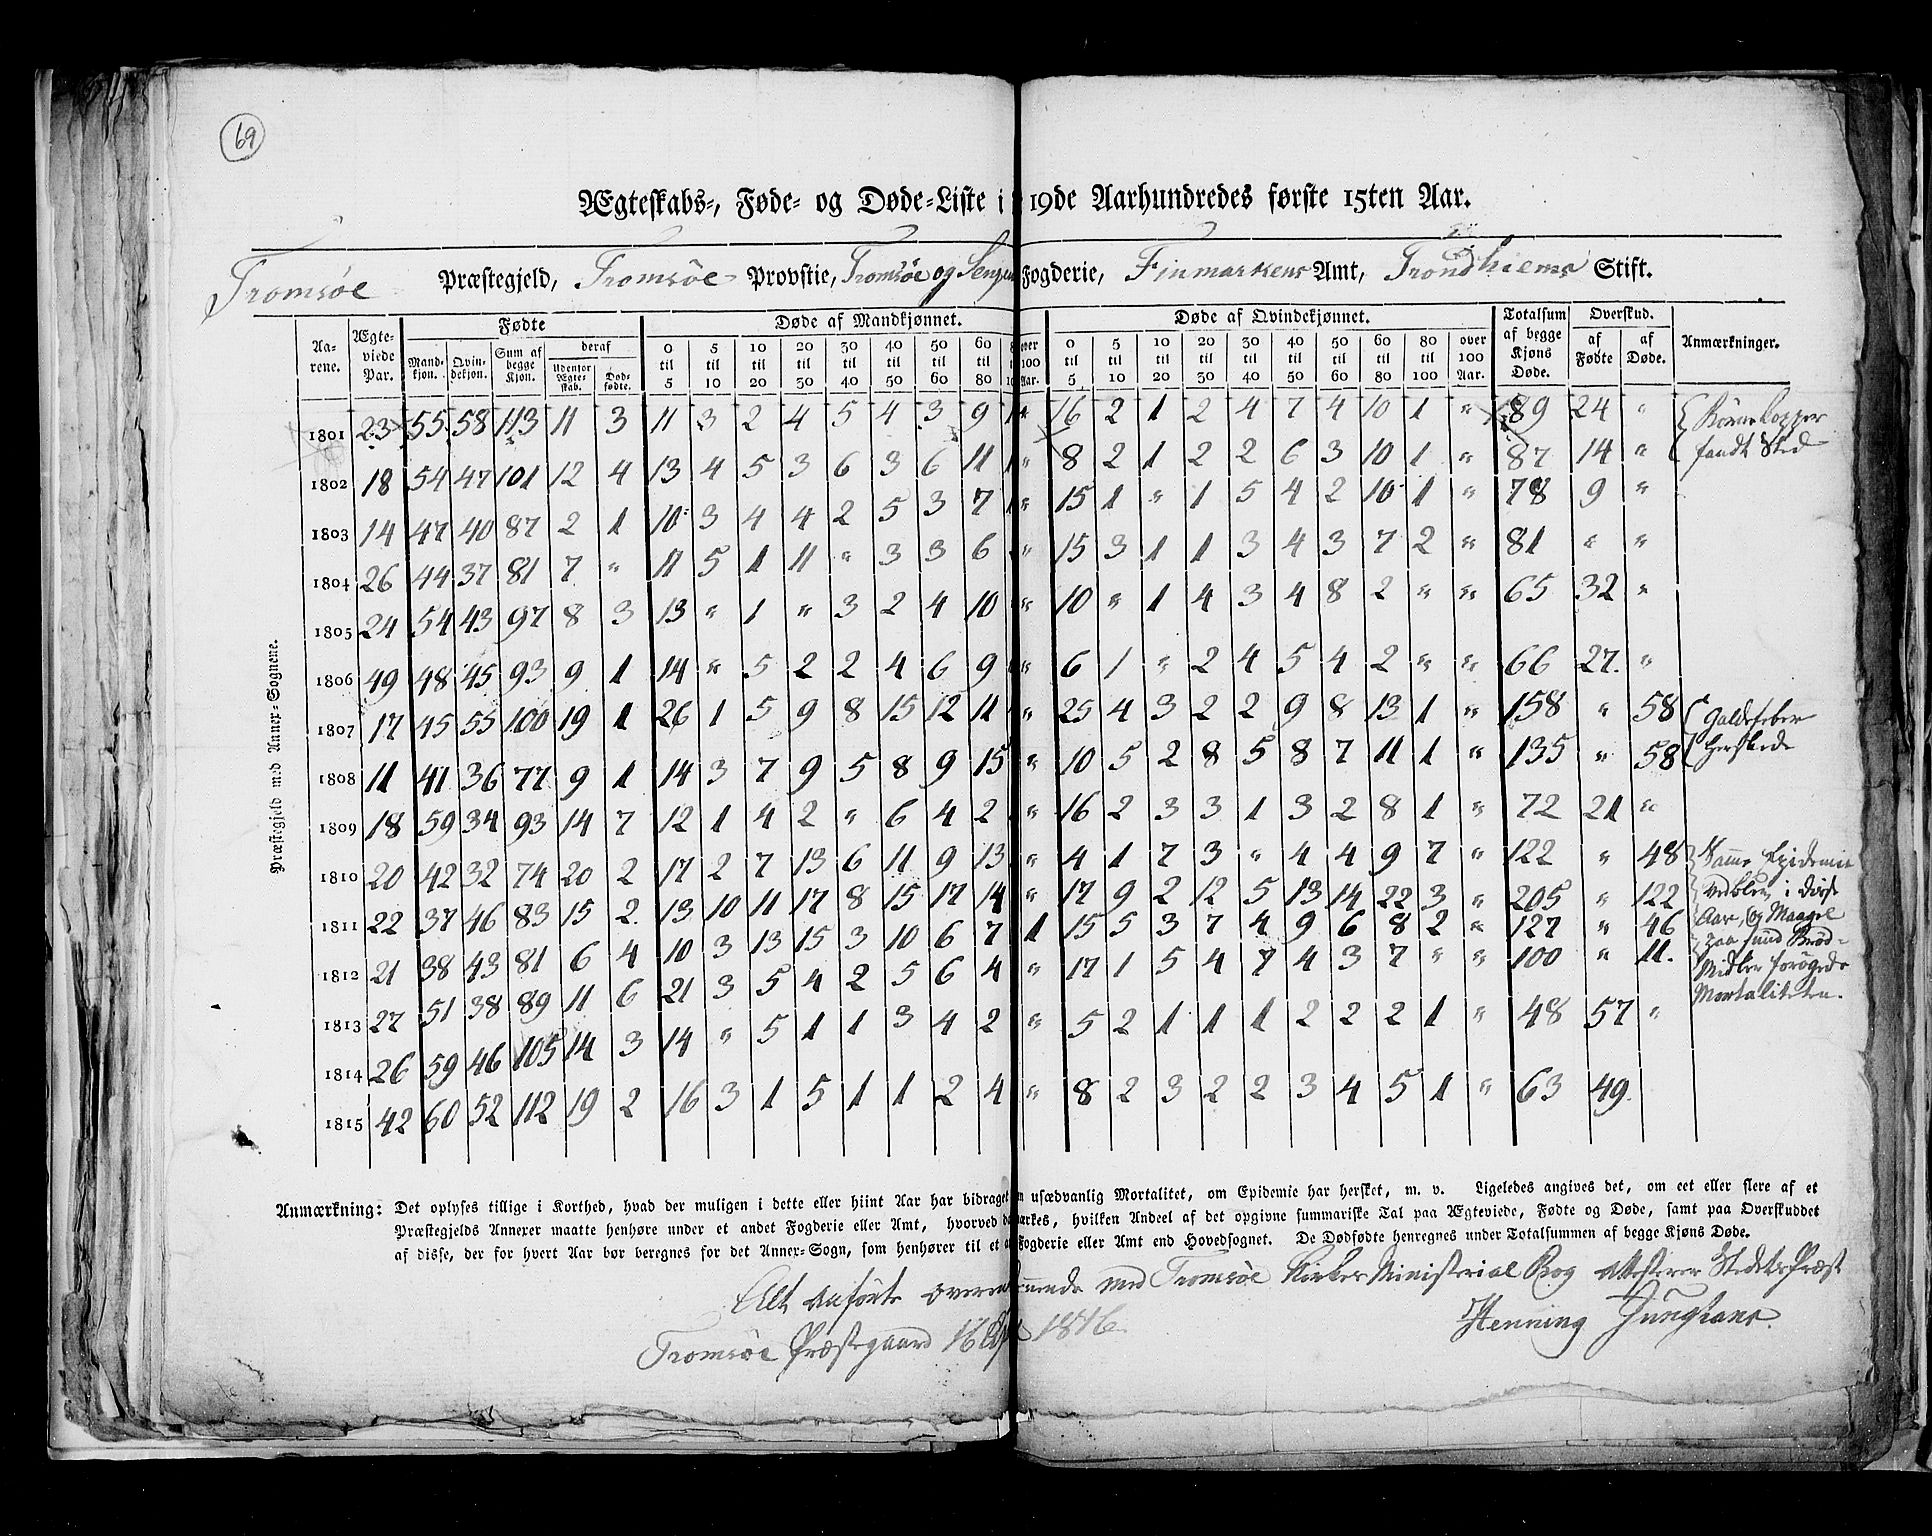 69
Ægteskabs-, Føde- og Døde-Liste i 19de Aarhundredes første 15ten Aar.
Tromsøe Præstegjeld, Tromsøe Provstie, Tromsøe og Senjen Fogderie, Finmarkens Amt, Trondhiems Stift.
Præstegjeld med Annex-Sognene.
Aarene. Ægteviede Par. Fødte Døde af Mandkjønnet. Døde af Qvindekjønnet. Totalsum af begge Kjøns Døde. Overskud. Anmærkninger.
Mandkjøn. Qvindekjøn. Sum af begge Kjøn. deraf af Fødte af Døde.
Udenfor Ægteskab. Dødfødte.
0 til 5 5 til 10 10 til 20 20 til 30 30 til 40 40 til 50 50 til 60 60 til 80 over 100 Aar. 0 til 5 5 til 10 10 til 20 20 til 30 30 til 40 40 til 50 50 til 60 60 til 80 80 til 100 over 100 Aar.
1801 23 55 58 113 11 3 11 3 2 4 5 4 3 9 1 " 16 2 1 2 4 7 4 10 1 " 89 24 "
1802 18 54 47 101 12 4 13 4 5 3 6 3 6 11 1 " 8 2 1 2 2 6 3 10 1 " 87 14 " fandt Sted
1803 14 47 40 87 2 1 10 3 4 4 2 5 3 7 " 15 1 " 1 5 4 2 10 1 " 78 9 "
1804 26 44 37 81 7 " 11 5 1 11 " 3 3 6 " 15 3 1 1 3 4 3 7 2 " 81 " "
1805 24 54 43 97 8 3 13 " 1 " 3 2 4 10 " 10 " 1 4 3 4 8 2 " " 65 32 "
1806 49 48 45 93 9 1 14 " 5 2 2 4 6 9 " 6 1 " 2 4 5 4 2 " " 66 27. "
1807 17 45 55 100 19 1 26 1 5 9 8 15 12 11 " 25 4 3 2 2 9 8 13 1 " 158 " 58 Galdefeber
1808 11 41 36 77 9 1 14 3 7 9 5 8 9 15 " 10 5 2 8 5 8 7 11 1 " 135 " 58 herskede
1809 18 59 34 93 14 7 12 1 4 2 " 6 4 2 " 16 2 3 3 1 3 2 8 1 " 72 21 "
1810 20 42 32 74 20 2 17 2 7 13 6 11 9 13 " 4 1 7 3 " 4 4 9 7 " 122 " 48 Samme Epidemie
1811 22 37 46 83 15 2. 13 10 11 17 8 15 17 14 " 17 9 2 12 5 13 14 22 3 " 205 " 122 vedblev i disse
1812 21 38 43 81 6 4 10 3 13 15 3 10 6 7 1 15 5 3 7 4 9 6 8 2 " 127 " 46 Aar, og Mangel
paa sund Brød-
1813 27 51 38 89 11 6 21 3 5 4 2 5 6 4 " 17 1 5 4 7 4 3 7 " " 100 " 11. Midler forøgede
Mortaliteten.
1814 26 59 46 105 14 3 14 " 5 1 1 3 4 2 " 5 2 1 1 1 2 2 2 1 " 48 57 "
1815 42 60 52 112 19 2 16 3 1 5 1 1 2 4 " 8 2 3 2 2 3 4 5 1 " 63 49.
Anmærkning: Det oplyses tillige i Korthed, hvad der muligen i dette eller hiint Aar har bidraget usædvanlig Mortalitet, om Epidemie har hersket, m. v. Ligeledes angives det, om eet eller flere af et
Præstegjelds Annexer maatte henhøre under et andet Fogderie eller Amt, hvorved hvilken Andeel af det opgivne summariske Tal paa Ægteviede, Fødte og Døde, samt paa Overskuddet
af disse, der for hvert Aar bør beregnes for det Annex-Sogn, som henhører til et Fogderie eller Amt end Hovedsognet. De Dødfødte henregnes under Totalsummen af begge Kjøns Døde.
Alt anførte med Tromsøe Kirkes Ministerial Bog attesterer Stedets Præst
Tromsøe Præstegaard 16 1816. Henning Junghans.